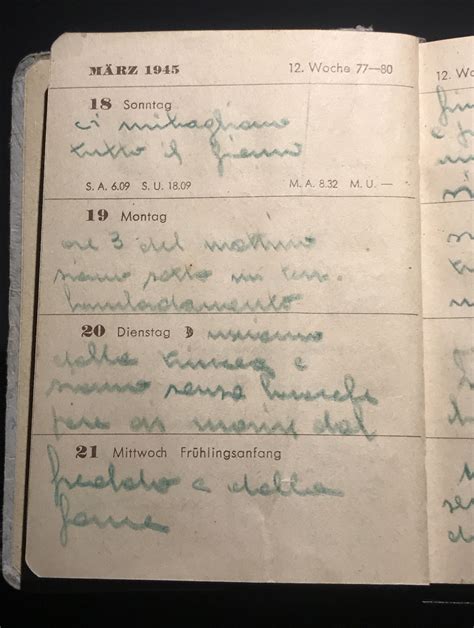 MÄRZ 1945 12. Woche 77—80 12. Wo
18 Sonntag
ci mitragliano
tutto il giorno
S. A. 6.09 S. U. 18.09 M. A. 8.32 M. U. —
19 Montag
ore 3 del mattino
siamo sotto un
bombardamento
20 Dienstag usciamo
dalla e
siamo senza
per dal
21 Mittwoch Frühlingsanfang
freddo e dalla
fame